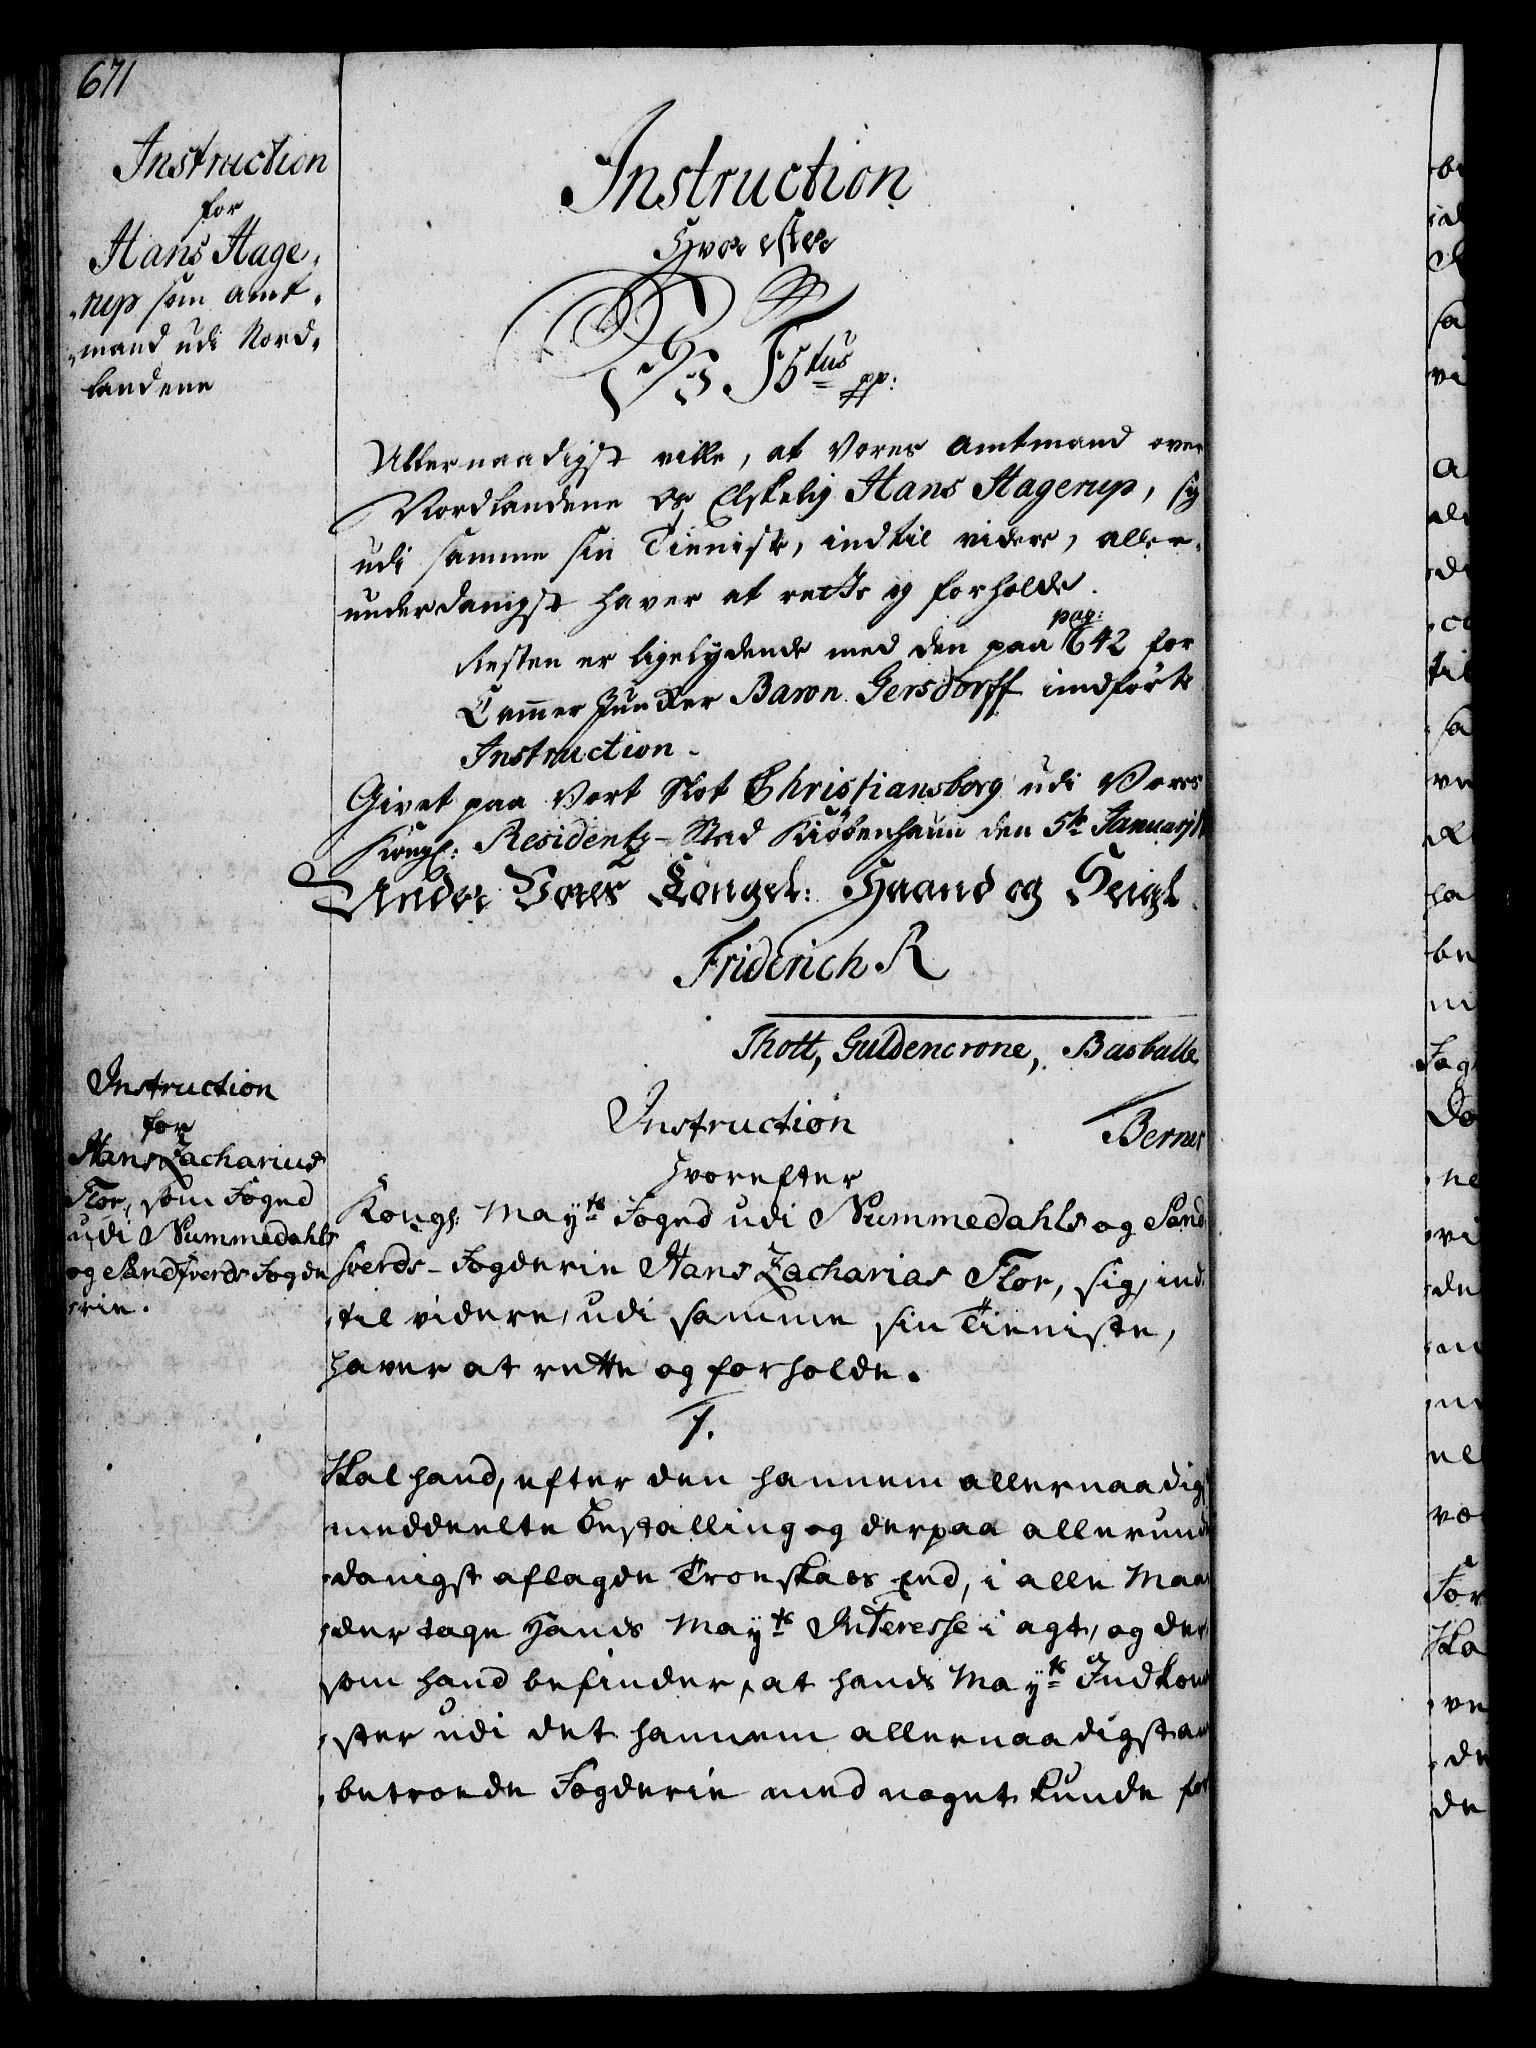 671
Instruction
for
Hans Hage,
"rup som Amt,
"mand udi Nord,
landene
Instruction
Hvor efter
Vi F 5tus pp:
Allernaadigst ville, at Vores Amtmand over
Nordlandene Os Elskelig Hans Hagerup, sig
udi samme sin Tieniste, indtil videre, aller,
underdanigst haver at rette og forholde.
Resten er ligelydende med den paa pag: 642 for
Cammer Juncker Baron Gersdorff indførte
Instruction.
Givet paa Vort Slot Christiansborg udi Vores
Kongl: Residentz-Stad Kiøbenhaun den 5te Januarij
Under Vores Kongel: Haand og Seigl.
Friderich R
Thott, Guldencrone, Basballe
Berner
Instruction
for
Hans Zacharias
Flor, som Foged
udi Nummedahls
og Sandsverds Fogde
"rie.
Instruction
Hvorefter
Kongl: Mayts Foged udi Nummedahls og Sand
sverds-Fogderie Hans Zacharias Flor, sig, ind,
"til videre, udi samme sin Tieniste,
haver at rette og forholde.
1.
Skal hand, efter den hannem allernaadigst
meddeelte Bestalling og derpaa allerund
"danigst aflagde Troeskabs Eed, i alle Maa
"der tage Hands Mayts Interesse i agt, og der,
"som hand befinder, at hands Mayts Indkom
"ster udi det hannem allernaadigst an
"betroede Fogderie med noget kunde for